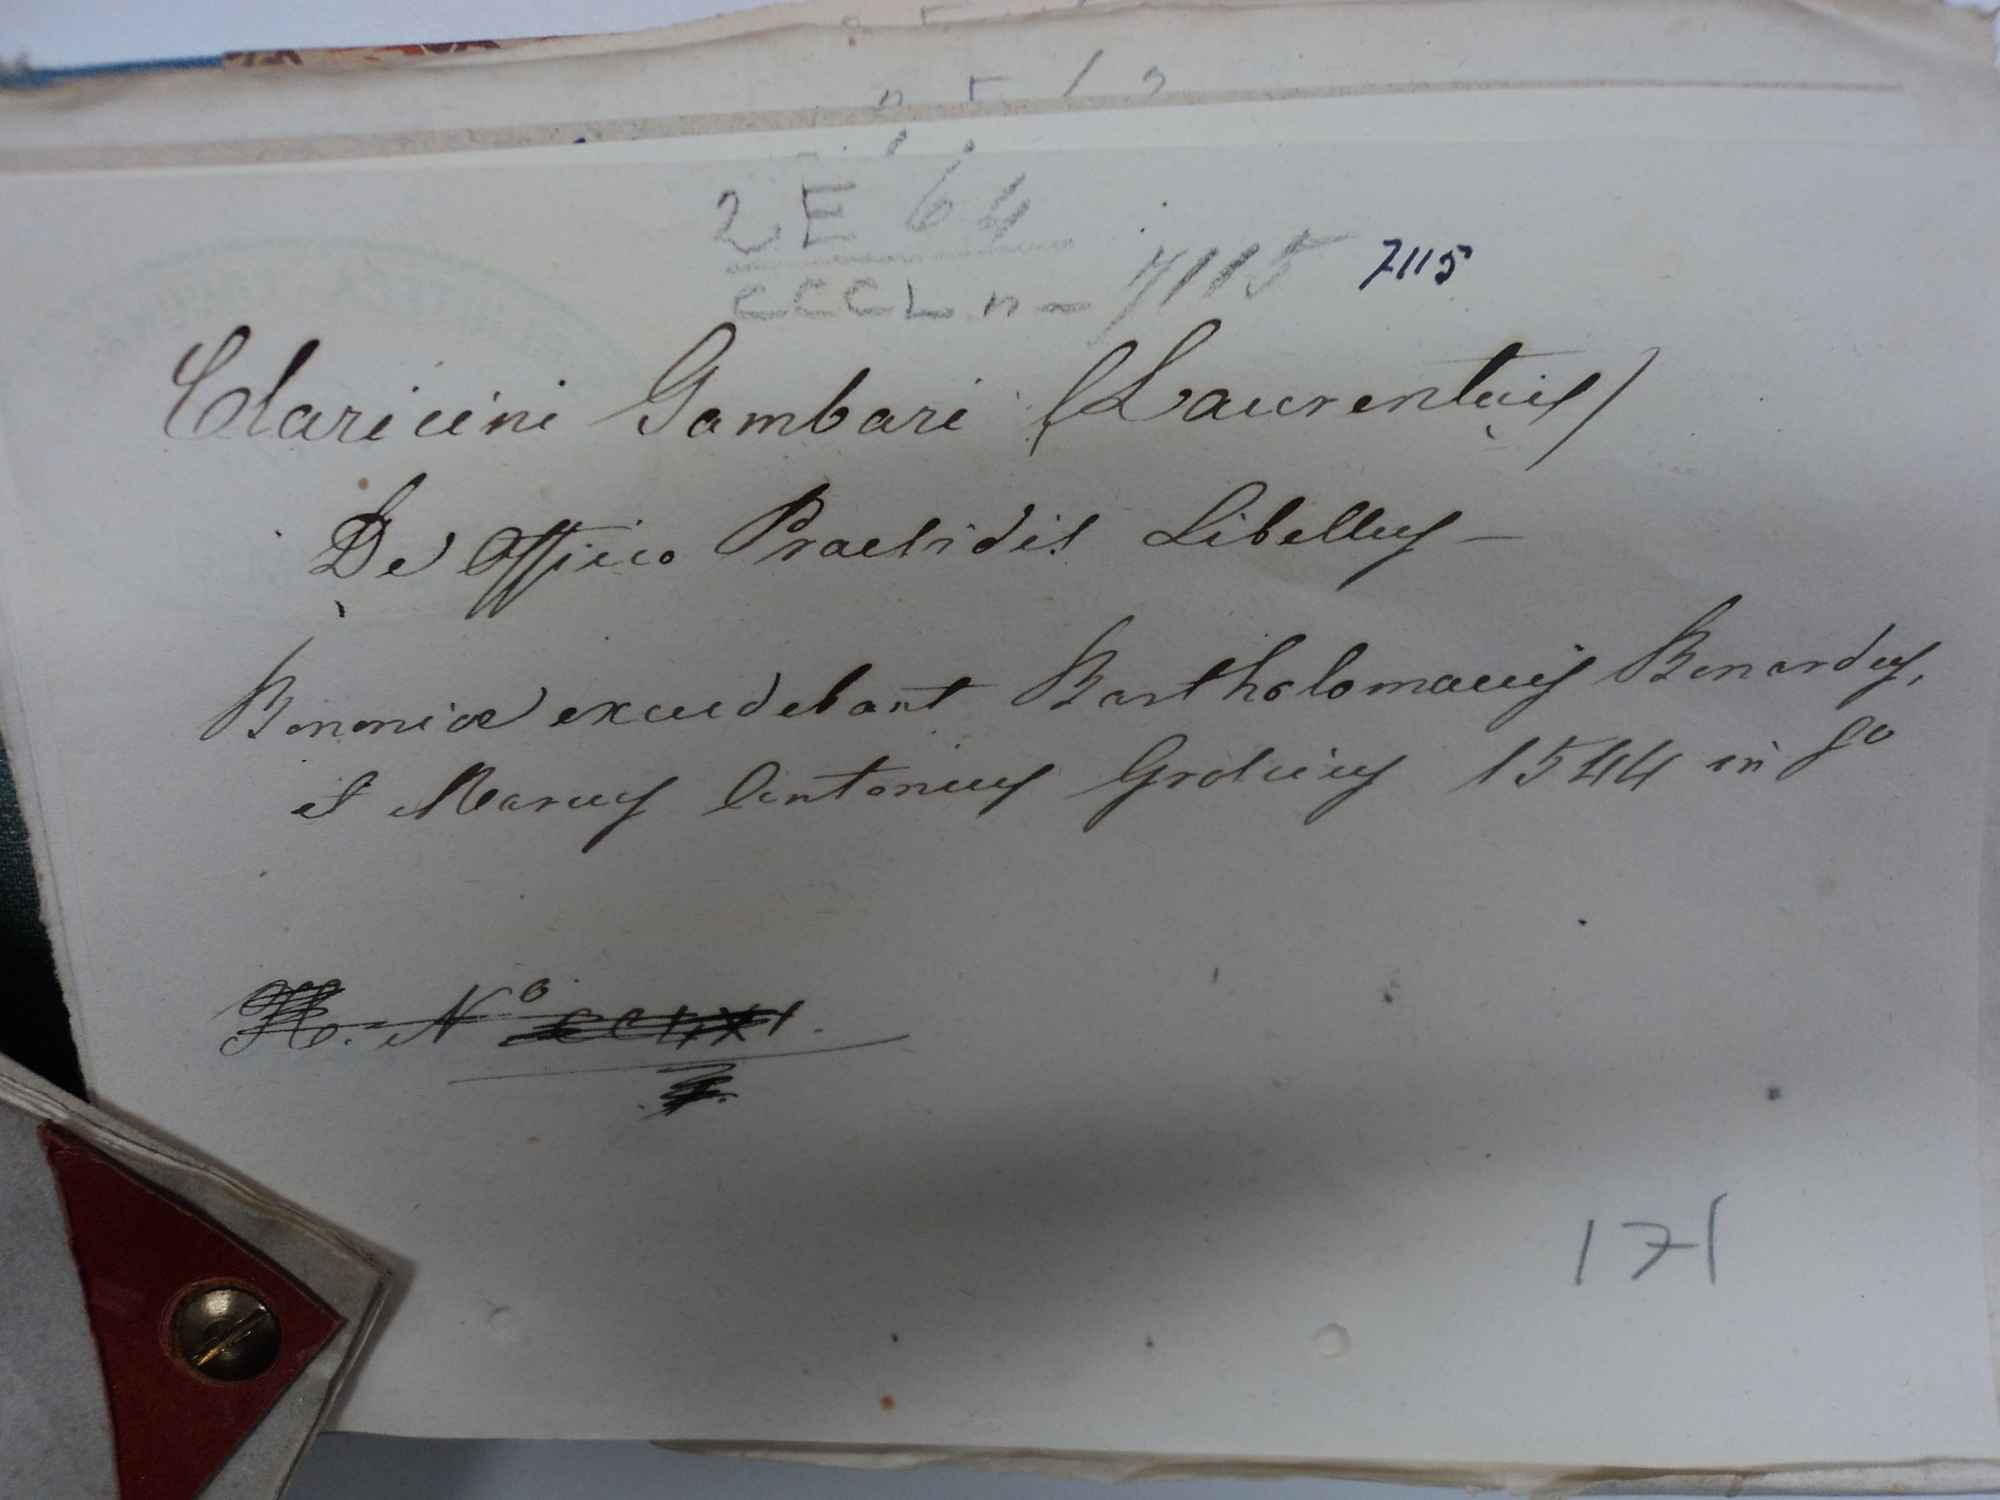 2 E 64
CCCL n - 7115 7115
Claricini Gambari (Laurentius)
De Officio Praesidis Libellus —
Bononiae excudebant Bartholomaeus Bonardus,
et Marcus Antonius Grotius 1544 in 8º
H. Nº CCLXXI.
171